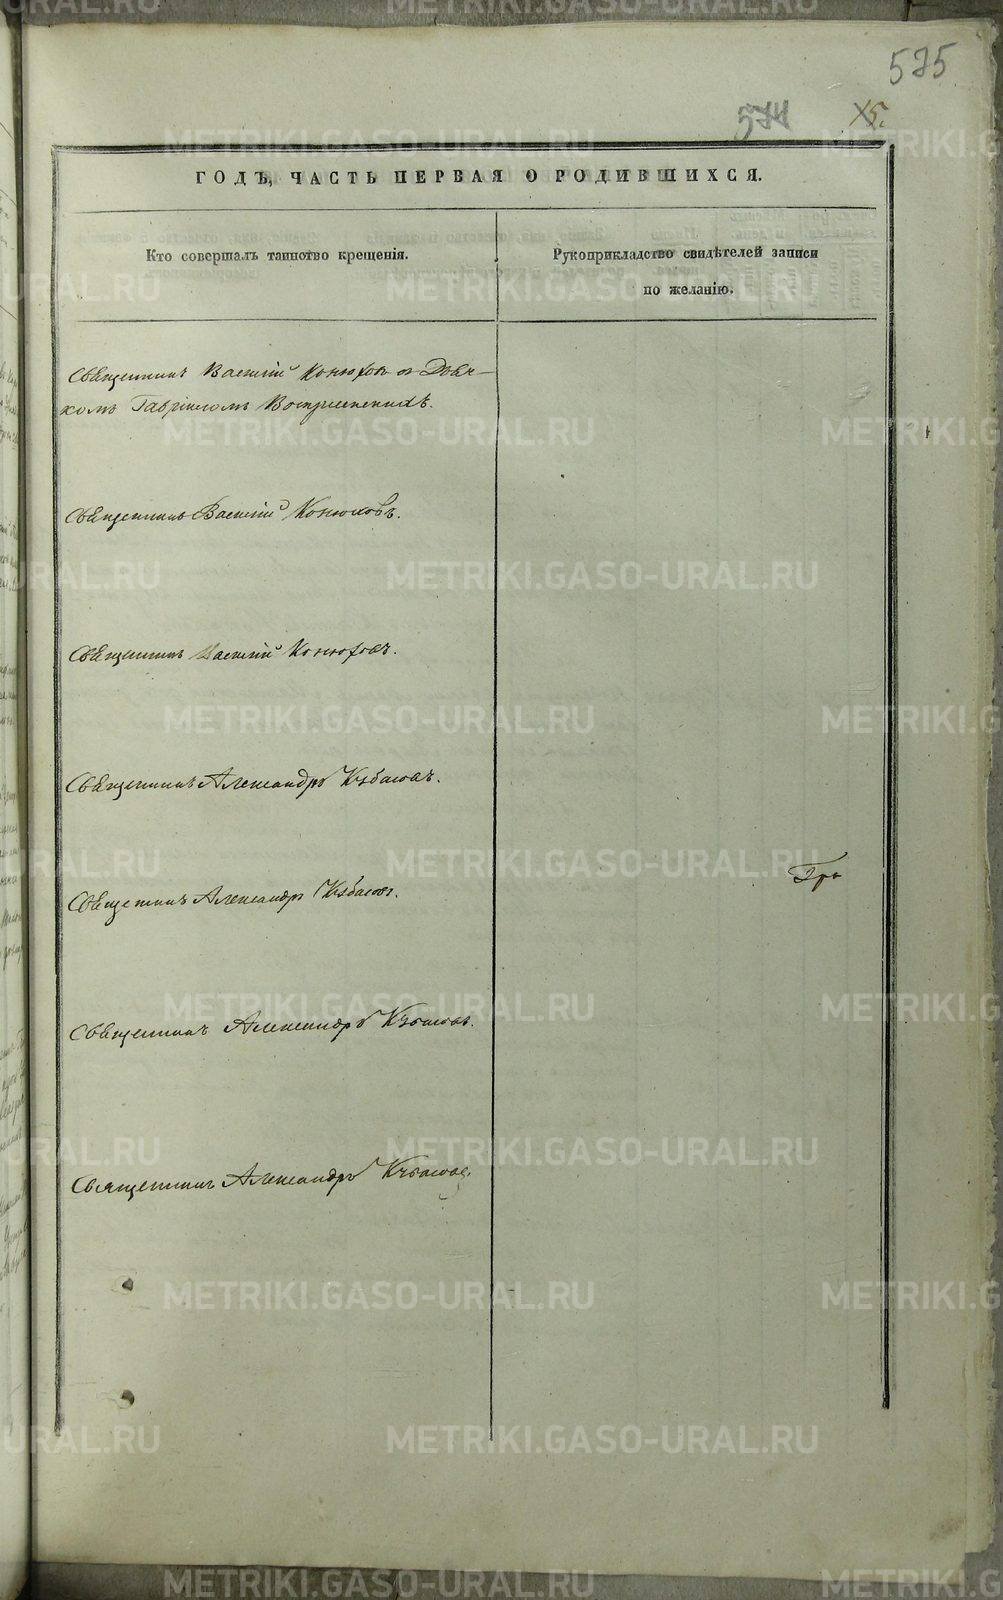 575
574
ГОДЪ, ЧАСТЬ ПЕРВАЯ О РОДИВШИХСЯ.
Кто совершалъ таинство крещенія.
Рукоприкладство свидѣтелей записи
по желанію.
Священникъ Василій Конюховъ съ Дьяч-
комъ Гавріиломъ
Священникъ Василій Конюховъ.
Священникъ Василій Конюховъ.
Священникъ Александръ
Священникъ Александръ
Священникъ Александръ
Священникъ Александръ
METRIKI.GASO-URAL.RU